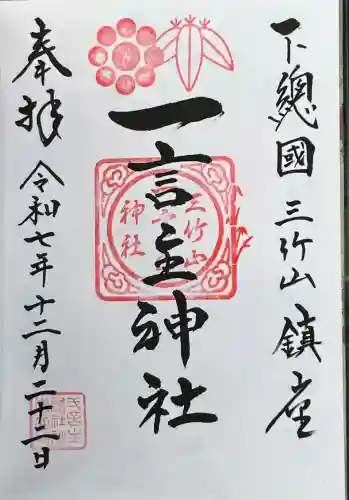 下總國三竹山鎮座
一言主神社
奉拝
令和七年十二月二十二日
三竹山
神社